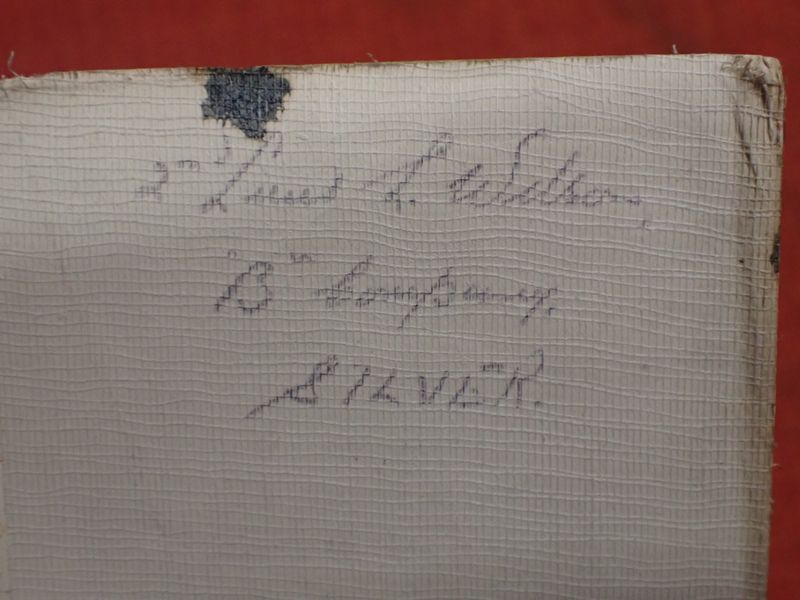 2nd Lieut F. Wilson,
"B" Company.
SILVER.